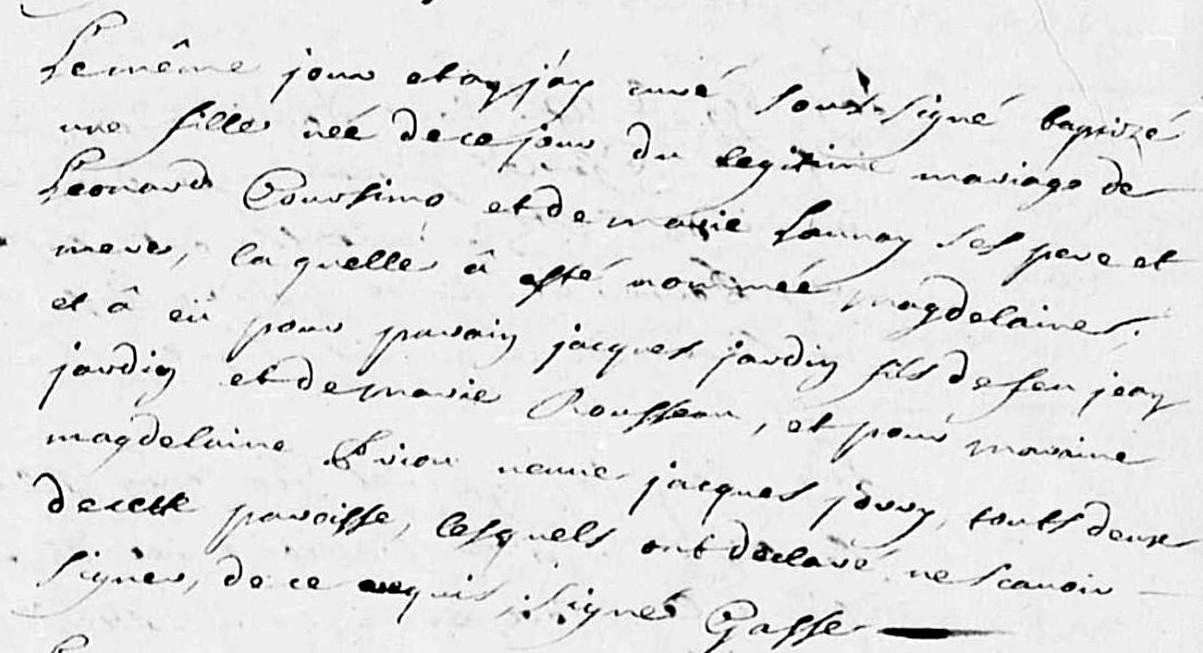 Le même jour et an j'ay curé sous-signé baptizé
une fille née de ce jour du legitime mariage de
Leonard Coursimo et de marie Launay ses pere et
mere, laquelle â esté nommée magdelaine.
et â eü pour parain jacques jardin fils de feu jean
jardin et de marie Rousseau, et pour maraine
magdelaine Brion veuve jacques jouvy, touts deux
de cette paroisse, lesquels ont déclaré ne scavoir
signer, de ce enquis, signé Gasse